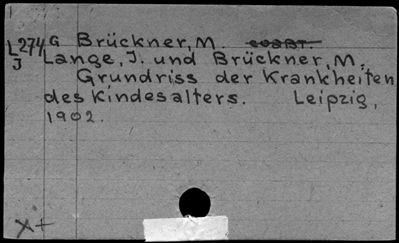 L274 G Brückner, M.
J Lange, J. und Brückner, M.
Grundriss der Krankheiten
des Kindesalters. Leipzig,
1902.
x+